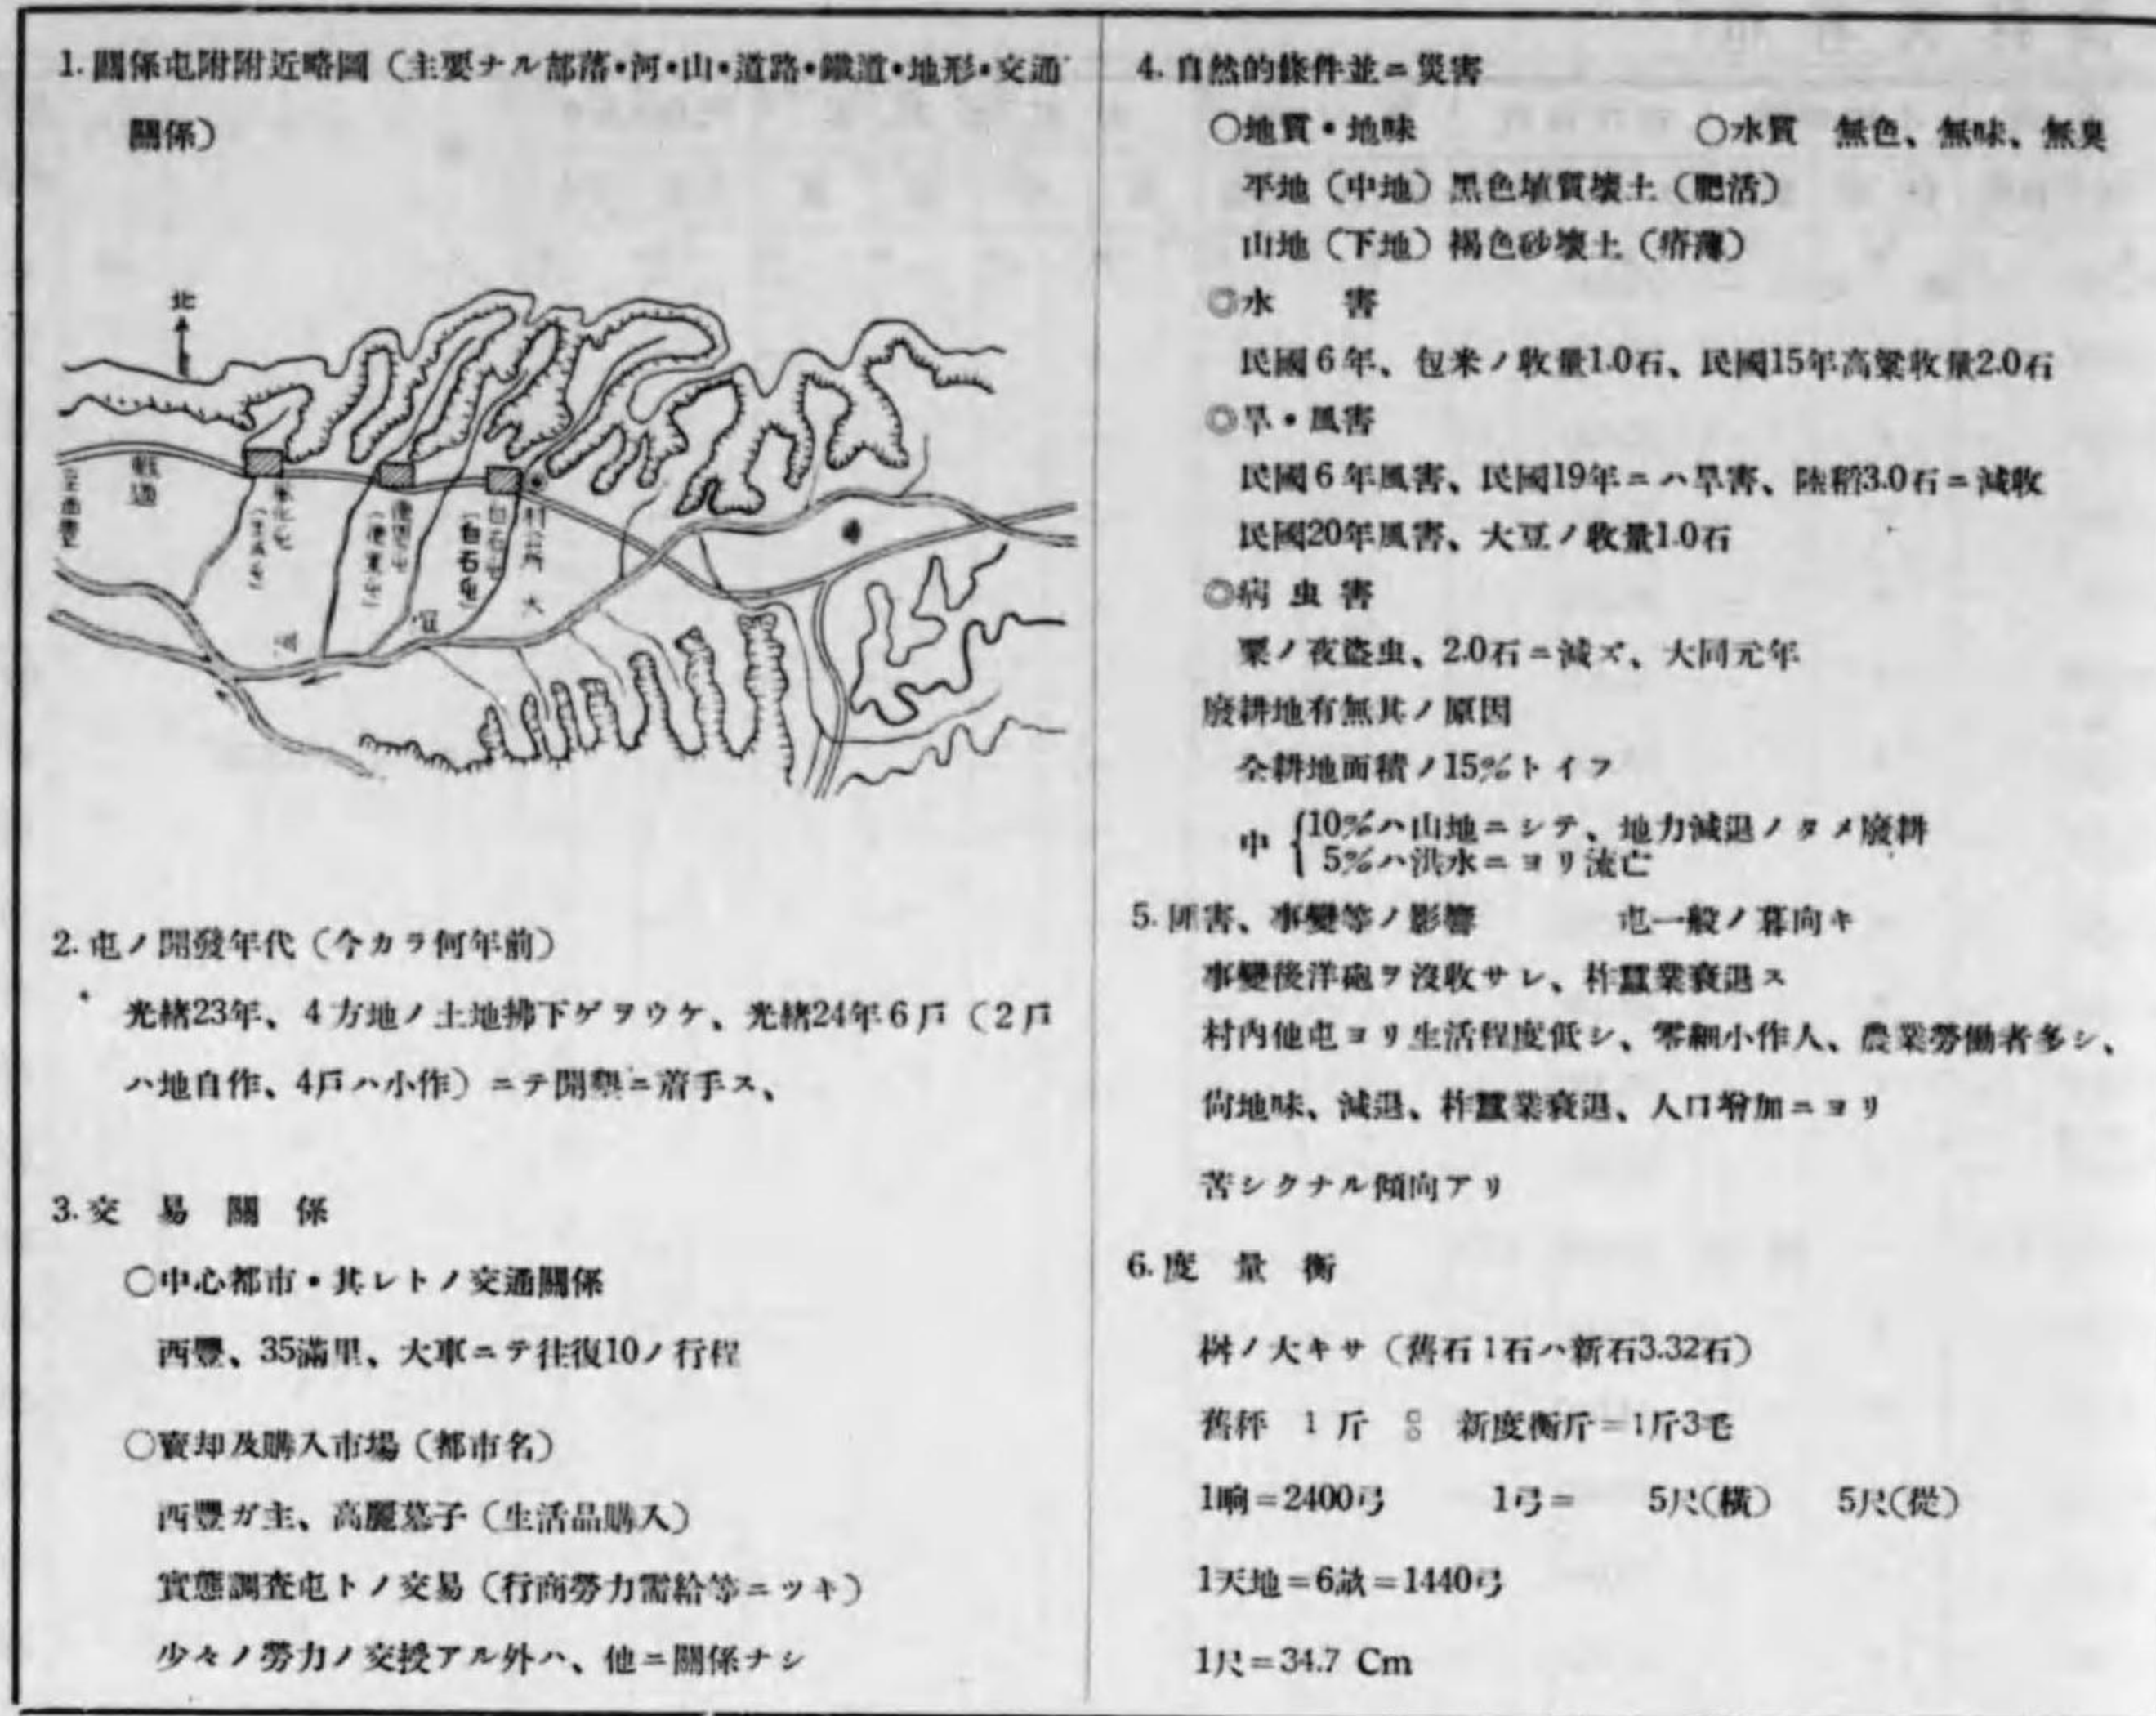 1. 關係屯附附近略圖（主要ナル部落•河•山•道路•鐵道•地形•交通
關係）
北
鐵道
白石屯
（白石屯）
村公所
大
2. 屯ノ開發年代（今カラ何年前）
光緒23年、4方地ノ土地拂下ゲヲウケ、光緒24年6戸（2戸
ハ地自作、4戸ハ小作）ニテ開墾ニ着手ス、
3. 交易關係
○中心都市•其レトノ交通關係
西豐、35滿里、大車ニテ往復10ノ行程
○賣却及購入市場（都市名）
西豐ガ主、高麗墓子（生活品購入）
實態調査屯トノ交易（行商勞力需給等ニツキ）
少々ノ勞力ノ交授アル外ハ、他ニ關係ナシ
4. 自然的條件並ニ災害
○地質•地味　○水質　無色、無味、無臭
平地（中地）黑色埴質壤土（肥活）
山地（下地）褐色砂壤土（瘠薄）
◎水害
民國6年、包米ノ收量1.0石、民國15年高粱收量2.0石
◎旱•風害
民國6年風害、民國19年ニハ旱害、陸稻3.0石ニ減收
民國20年風害、大豆ノ收量1.0石
◎病虫害
粟ノ夜盜虫、2.0石ニ減ズ、大同元年
廢耕地有無其ノ原因
全耕地面積ノ15%トイフ
中
10%ハ山地ニシテ、地力減退ノタメ廢耕
5%ハ洪水ニヨリ流亡
5. 匪害、事變等ノ影響　屯一般ノ暮向キ
事變後洋砲ヲ沒收サレ、柞蠶業衰退ス
村內他屯ヨリ生活程度低シ、零細小作人、農業勞働者多シ、
尙地味、減退、柞蠶業衰退、人口增加ニヨリ
苦シクナル傾向アリ
6. 度量衡
桝ノ大キサ（舊石1石ハ新石3.32石）
舊秤　1斤　新度衡斤=1斤3毛
1晌=2400弓　1弓=　5尺(橫)　5尺(從)
1天地=6畝=1440弓
1尺=34.7 Cm